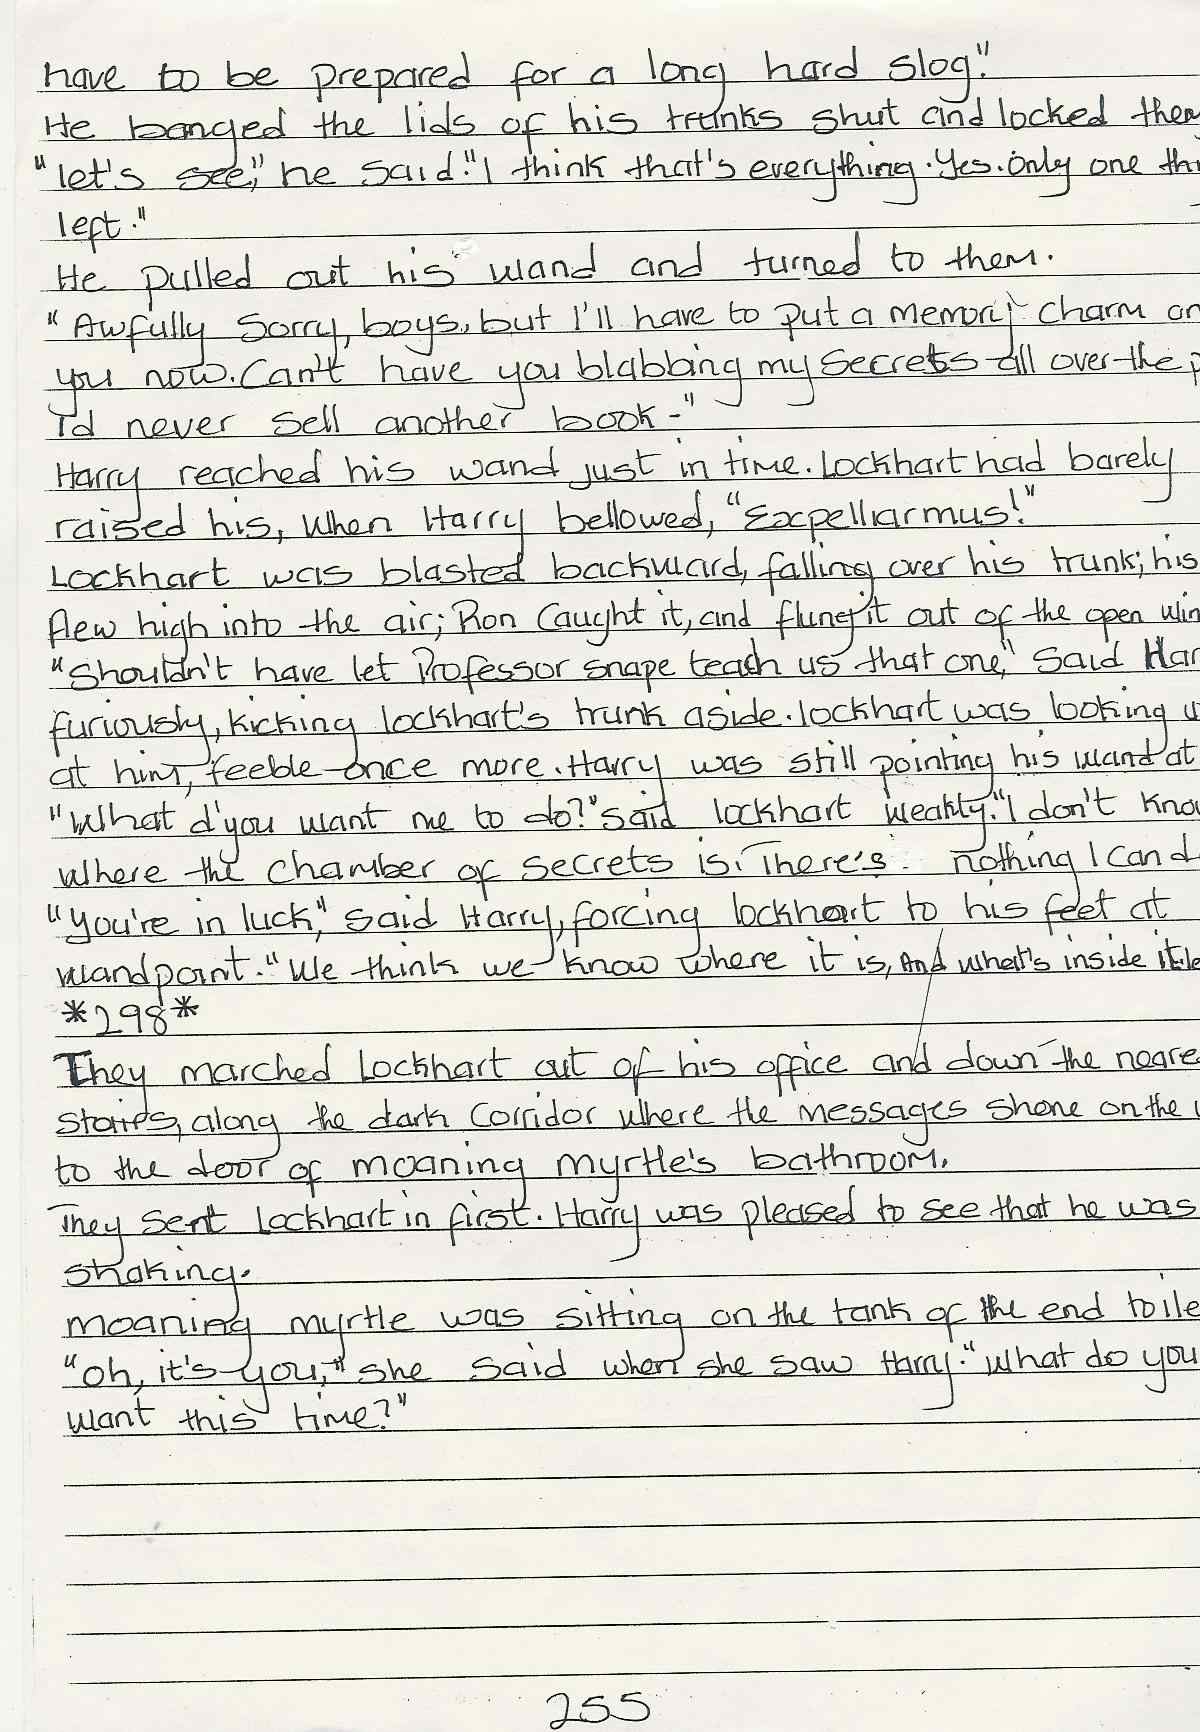 have to be prepared for a long hard slog."
He banged the lids of his trunks shut and locked them
"let's see," he said. "I think that's everything. Yes. Only one thi
left."
He pulled out his wand and turned to them.
"Awfully sorry, boys, but I'll have to put a memory charm on
you now. Can't have you blabbing my secrets all over the p
I'd never sell another book-"
Harry reached his wand just in time. Lockhart had barely
raised his, when Harry bellowed, "Expelliarmus!"
Lockhart was blasted backward, falling over his trunk; his
flew high into the air; Ron caught it, and flung it out of the open win
"Shouldn't have let Professor snape teach us that one," said Har
furiously, kicking lockhart's trunk aside. lockhart was looking u
at him, feeble once more. Harry was still pointing his wand at
"What d'you want me to do?" said lockhart weakly. "I don't kno
where the chamber of secrets is. There's nothing I can d
"you're in luck," said Harry, forcing lockhart to his feet at
wandpoint. "We think we know where it is, And what's inside it. le
*298*
They marched Lockhart out of his office and down the neare
stairs, along the dark corridor where the messages shone on the w
to the door of moaning myrtle's bathroom.
They sent Lockhart in first. Harry was pleased to see that he was
shaking.
moaning myrtle was sitting on the tank of the end toile
"oh, it's you," she said when she saw Harry. "what do you
want this time?"
255